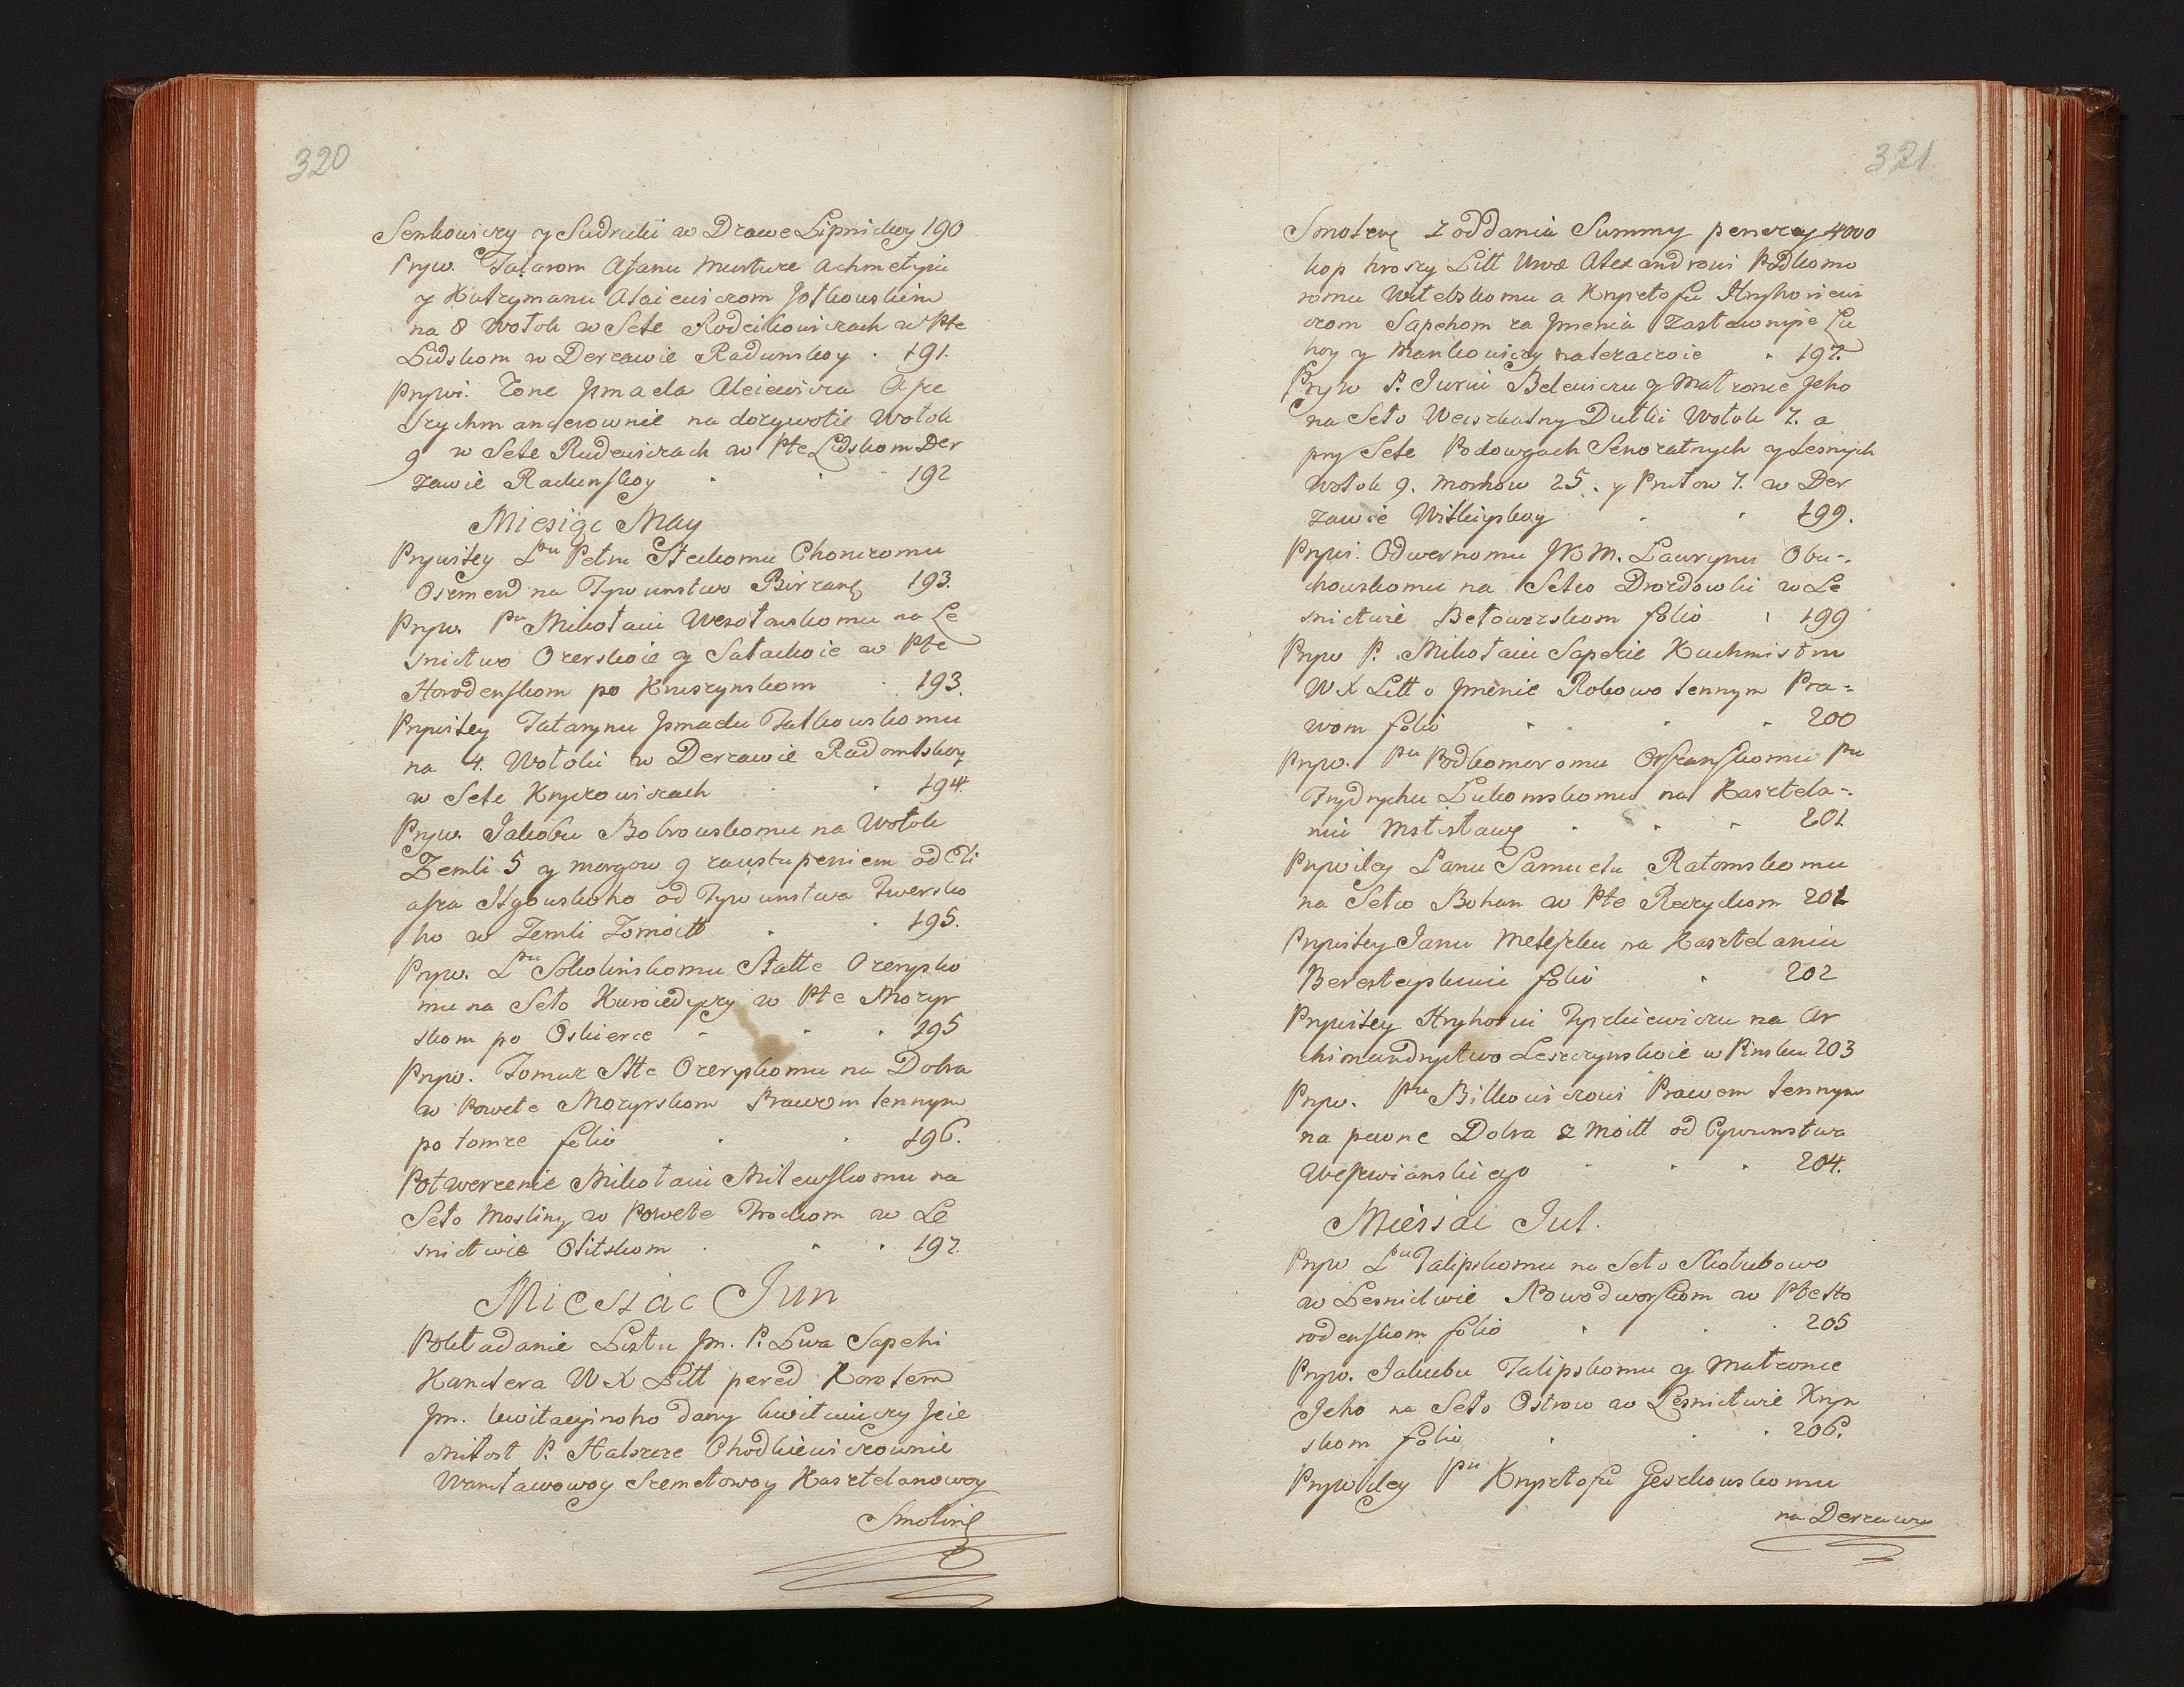 320
Senkowiczy y Sudruki w Drawe Lipnickoy 190
Pryw. Tatarom Asanu Murture Achmetyiu
y Kutzymanu Asaiewiczom Jotkouskim
na 8 Wołok w Sełe Rodeikowiczach w Pte
Lidskom w Derzawie Radunskoy . 191.
Prywi. Zone Jsmaela Aleiewicza
na dozywotie Wołok
9 w Sełe Rudewiczach w Pte Lidskom Der
zawie Radunskoy . . 192
Miesiąc May
Prywiley Pnu Petru Steckomu Choruzomu
Oszmend na Tywunstwo Birzans 193.
Pryw. Pu Mikołaiu Wesołouskomu na Le
snictwo Ozerskoie y Sałackoie w Pte
Horodenskom po Kruszynskom . 193.
Prywiley Tatarynu Jsmaelu Tatkouskomu
na 4. Wołoki w Derzawie Radomlskoy
w Sełe Kryczowiczach . . 194.
Pryw. Jakobu Bobrouskomu na Wołok
Zemli 5 y morgow 9 zaustupeniem od Eli
asza Jlgouskoho od Tywunstwa Twersko
ho w Zemli Zomoitt . . 195.
Pryw. Pnu Sokolinskomu Statte Ozerysko
mu na Seło Kuroiedyczy w Pte Mozyr
skom po Oskierce - . . 195
Pryw. Tomuz Stte Ozeryskomu na Dobra
w Powete Mozyrskom Prawom lennym
po tomze folio . . 196.
Potwerzenie Mikołaiu Milewskomu na
Seło Mosliny w Powete Trockom w Le
snictwie Olitskom . . . 197.
Miesiac Jun
Pokładanie Listu Jm. P. Lwa Sapehi
Kanclera W X Litt pered Korolem
Jm. kwitacyinoho dany kwituiuczy Jeie
miłost P. Halszce Chodkiewiczownie
Wanctawowoy Szemetowoy Kasztelanowoy
Smolens
321
Smolens z oddania Summy penezey 4000
kop hroszy Litt Urod Alexandrowi Podkomo
romu Witebskomu a Krysztofu Hryhoriewi
czom Sapehom za Jmenia Zastawnyie Lu
hoy y Mankowiczy naterazoie . 197.
Pryw P. Jurii Belewiczu y Małzonce Jeho
na Seło Weiszkatny Dutki Wołok 7. a
pry Sełe Podowgach Senozatnych y Lesnych
Wołok 9. Morhow 25. y Prutow 7. w Der
zawie Wilkiyskoy . . 199.
Prywi. Odwernomu JKM. Lawrynu Obu-
chouskomu na Selco Drozdowki w Le
snictwie Bełowezskom folio . 199
Pryw P. Mikołaiu Sapezie Kuchmistru
W X Litt o Jmenie Rokowo lennym Pra-
wom folio . . . 200
Pryw. Pu Podkomoromu Orszanskomu Pu
Frydrychu Lukomskomu na Kasztela-
niu Mstisławs . . . 201
Prywiley Panu Samuelu Ratomskomu
na Selco Bohan w Pte Reczyckom 201
Prywiley Janu Meleszku na Kasztelaniu
Beresteyskuiu folio . 202
Prywiley Hryhoriu Tyszkiewiczu na Ar
chimandryctwo Leszczynskoie w Pinsku 203
Pryw. Pu Bilkowiczowi Prawem lennym
na pewne Dobra z Moitt od Cywunstwa
Weszwianskiego . . . 204.
Miesiac Jul.
Pryw Pnu Talipskomu na Seło Skołubowo
w Lesnictwie Nowodworskom w Pte Ho
rodenskom folio . . . 205
Pryw. Jakubu Talipskomu y Małzonce
Jeho na Seło Ostrow w Lesnictwie Kryn
skom folio . . . 206.
Prywiley Pu Krysztofu Geszkouskomu
na Derzawu